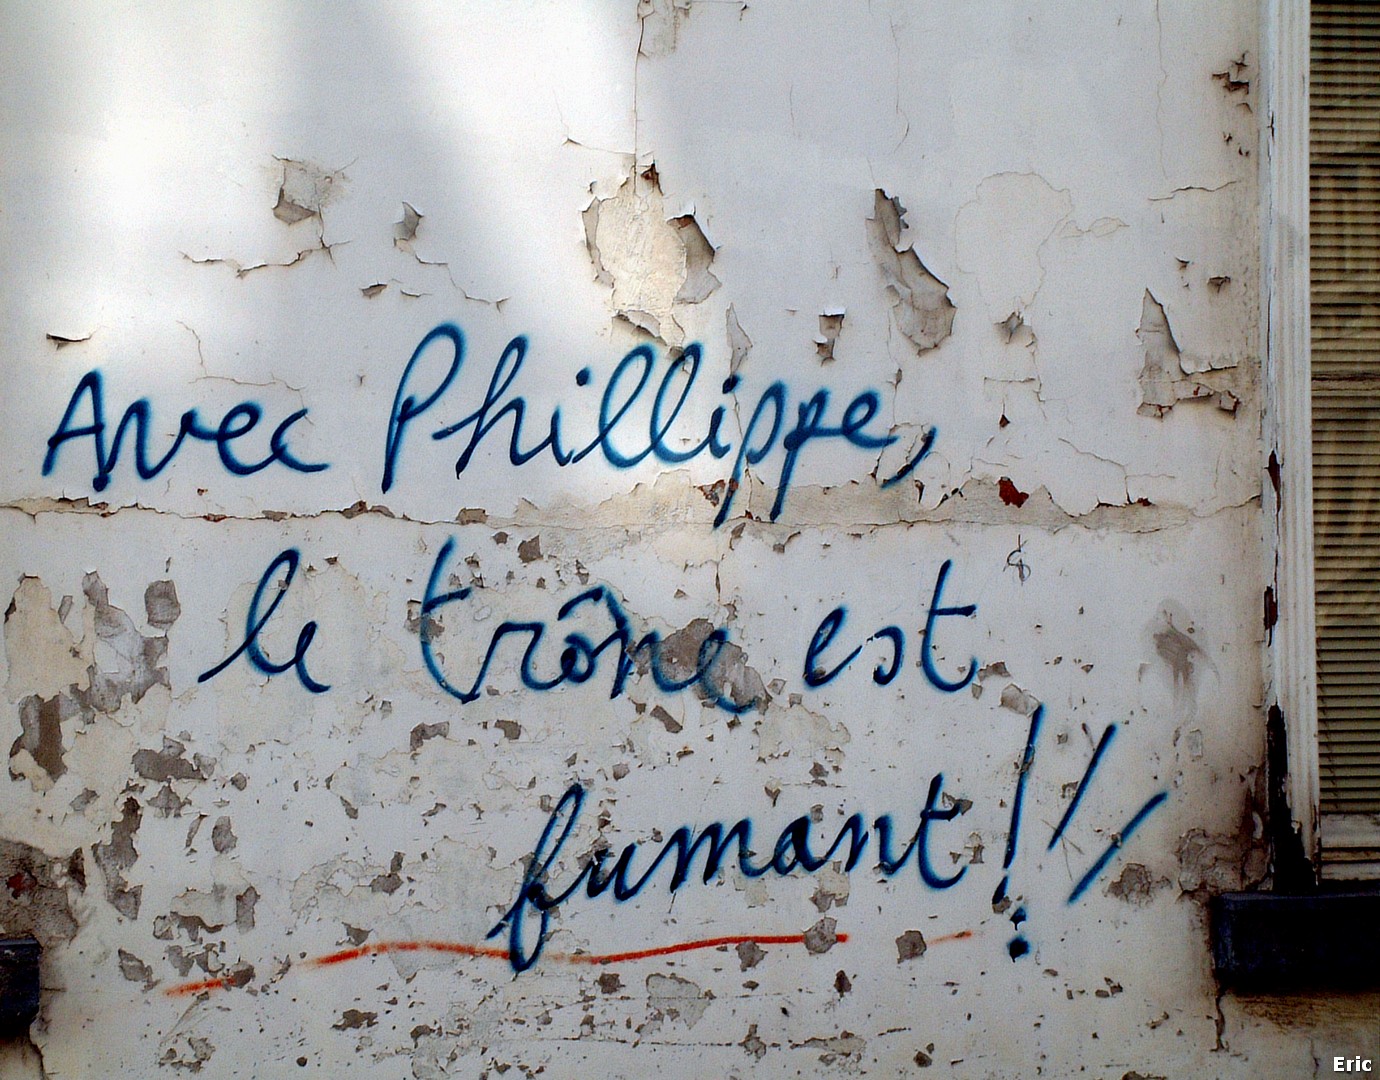 Avec Phillippe,
le trône est
fumant!!!
Eric